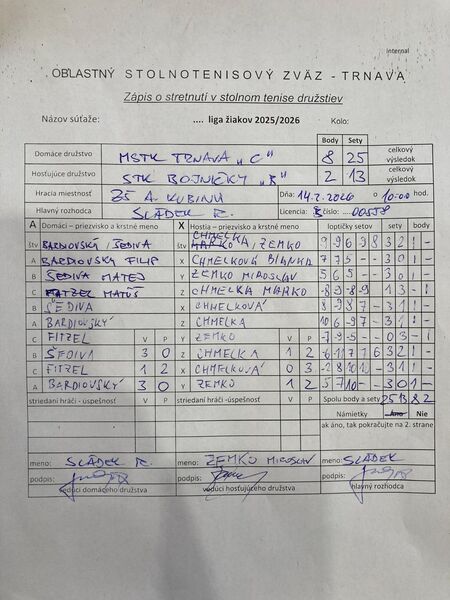 internal
OBLASTNÝ STOLNOTENISOVÝ ZVÄZ - TRNAVA
Zápis o stretnutí v stolnom tenise družstiev
Názov súťaže: .... liga žiakov 2025/2026 Kolo:
Body Sety
Domáce družstvo MSTK TRNAVA „C" 8 25 celkový výsledok
Hosťujúce družstvo STK BOJNIČKY „B" 2 13 celkový výsledok
Hracia miestnosť ZŠ A. KUBINU Dňa: 14.2.2026 o 10:00 hod.
Hlavný rozhodca SLÁDEK R. Licencia: č číslo: ....00558
A Domáci – priezvisko a krstné meno X Hostia – priezvisko a krstné meno loptičky setov sety body
štv BARDIOVSKÝ / ŠEDIVÁ štv CHMELKA / ZEMKO 9 9 6 9 8 3 2 1 -
A BARDIOVSKÝ FILIP X CHMELKOVÁ BIANKA 7 7 5 - - 3 0 1 -
B ŠEDIVA MATEJ Y ZEMKO MIROSLAV 5 6 5 - - 3 0 1 -
C FITZEL MATÚŠ Z CHMELKA MARKO -8 9 -8 -9 1 3 - 1
B ŠEDIVA X CHMELKOVÁ 8 -9 8 7 - 3 1 1 -
A BARDIOVSKÝ Z CHMELKA 10 6 -9 7 - 3 1 1 -
C FITZEL V P Y ZEMKO V P -7 -9 -5 - - 0 3 - 1
B ŠEDIVA 3 0 Z CHMELKA 1 2 -6 -11 7 7 6 3 2 1 -
C FITZEL 1 2 X CHMELKOVÁ 0 3 -2 8 10 10 - 3 1 1 -
A BARDIOVSKÝ 3 0 Y ZEMKO 1 2 5 7 10 - - 3 0 1 -
striedaní hráči - úspešnosť V P striedaní hráči - úspešnosť V P Spolu body a sety 25 13 8 2
Námietky Áno Nie
ak áno, tak pokračujte na 2. strane
meno: SLÁDEK R. meno: ZEMKO MIROSLAV meno: SLÁDEK
podpis: podpis: podpis:
vedúci domáceho družstva vedúci hosťujúceho družstva hlavný rozhodca